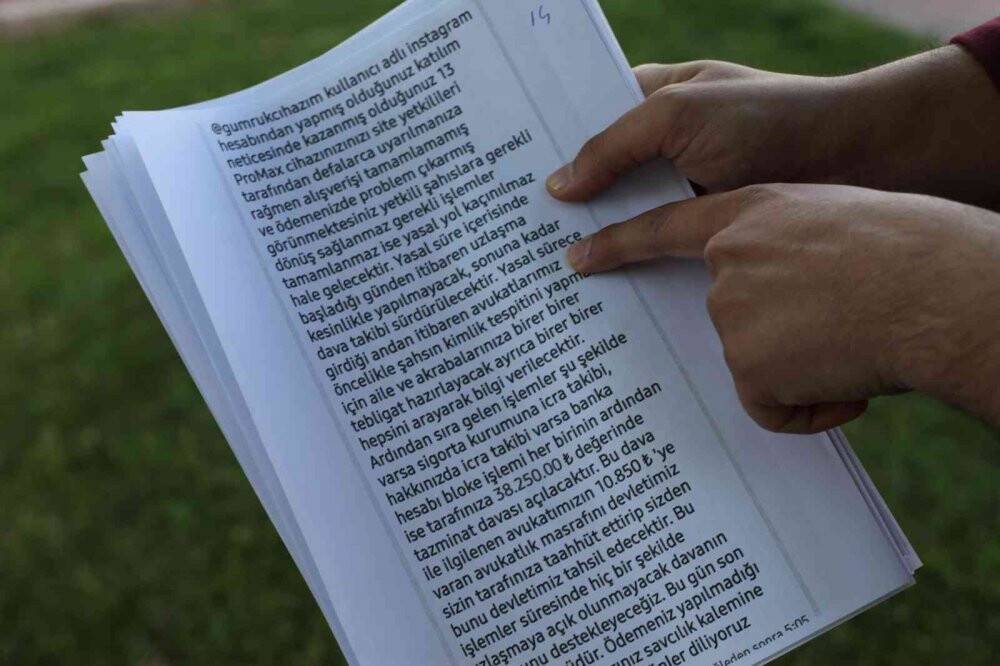 14
@gumrukcihazım kullanıcı adlı instagram
hesabından yapmış olduğunuz katılım
neticesinde kazanmış olduğunuz 13
ProMax cihazınızınızı site yetkilileri
tarafından defalarca uyarılmanıza
rağmen alışverişi tamamlamamış
ve ödemenizde problem çıkarmış
görünmektesiniz yetkili şahıslara gerekli
dönüş sağlanmaz gerekli işlemler
tamamlanmaz ise yasal yol kaçınılmaz
hale gelecektir. Yasal süre içerisinde
başladığı günden itibaren uzlaşma
kesinlikle yapılmayacak, sonuna kadar
dava takibi sürdürülecektir. Yasal sürece
girdiği andan itibaren avukatlarımız
öncelikle şahsın kimlik tespitini yapma
için aile ve akrabalarınıza birer birer
tebligat hazırlayacak ayrıca birer birer
hepsini arayarak bilgi verilecektir.
Ardından sıra gelen işlemler şu şekilde
varsa sigorta kurumuna icra takibi,
hakkınızda icra takibi varsa banka
hesabı bloke işlemi her birinin ardından
ise tarafınıza 38.250.00 ₺ değerinde
tazminat davası açılacaktır. Bu dava
ile ilgilenen avukatımızın 10.850 ₺ 'ye
varan avukatlık masrafını devletimiz
sizin tarafınıza taahhüt ettirip sizden
bunu devletimiz tahsil edecektir. Bu
işlemler süresinde hiç bir şekilde
uzlaşmaya açık olunmayacak davanın
destekleyeceğiz. Bu gün son
Ödemeniz yapılmadığı
savcılık kalemine
diliyoruz
sonra 5:05